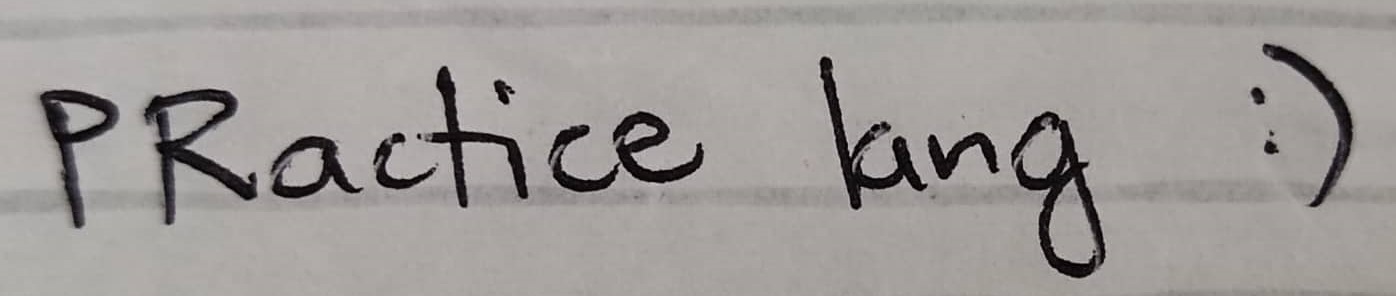 PRactice lang :)